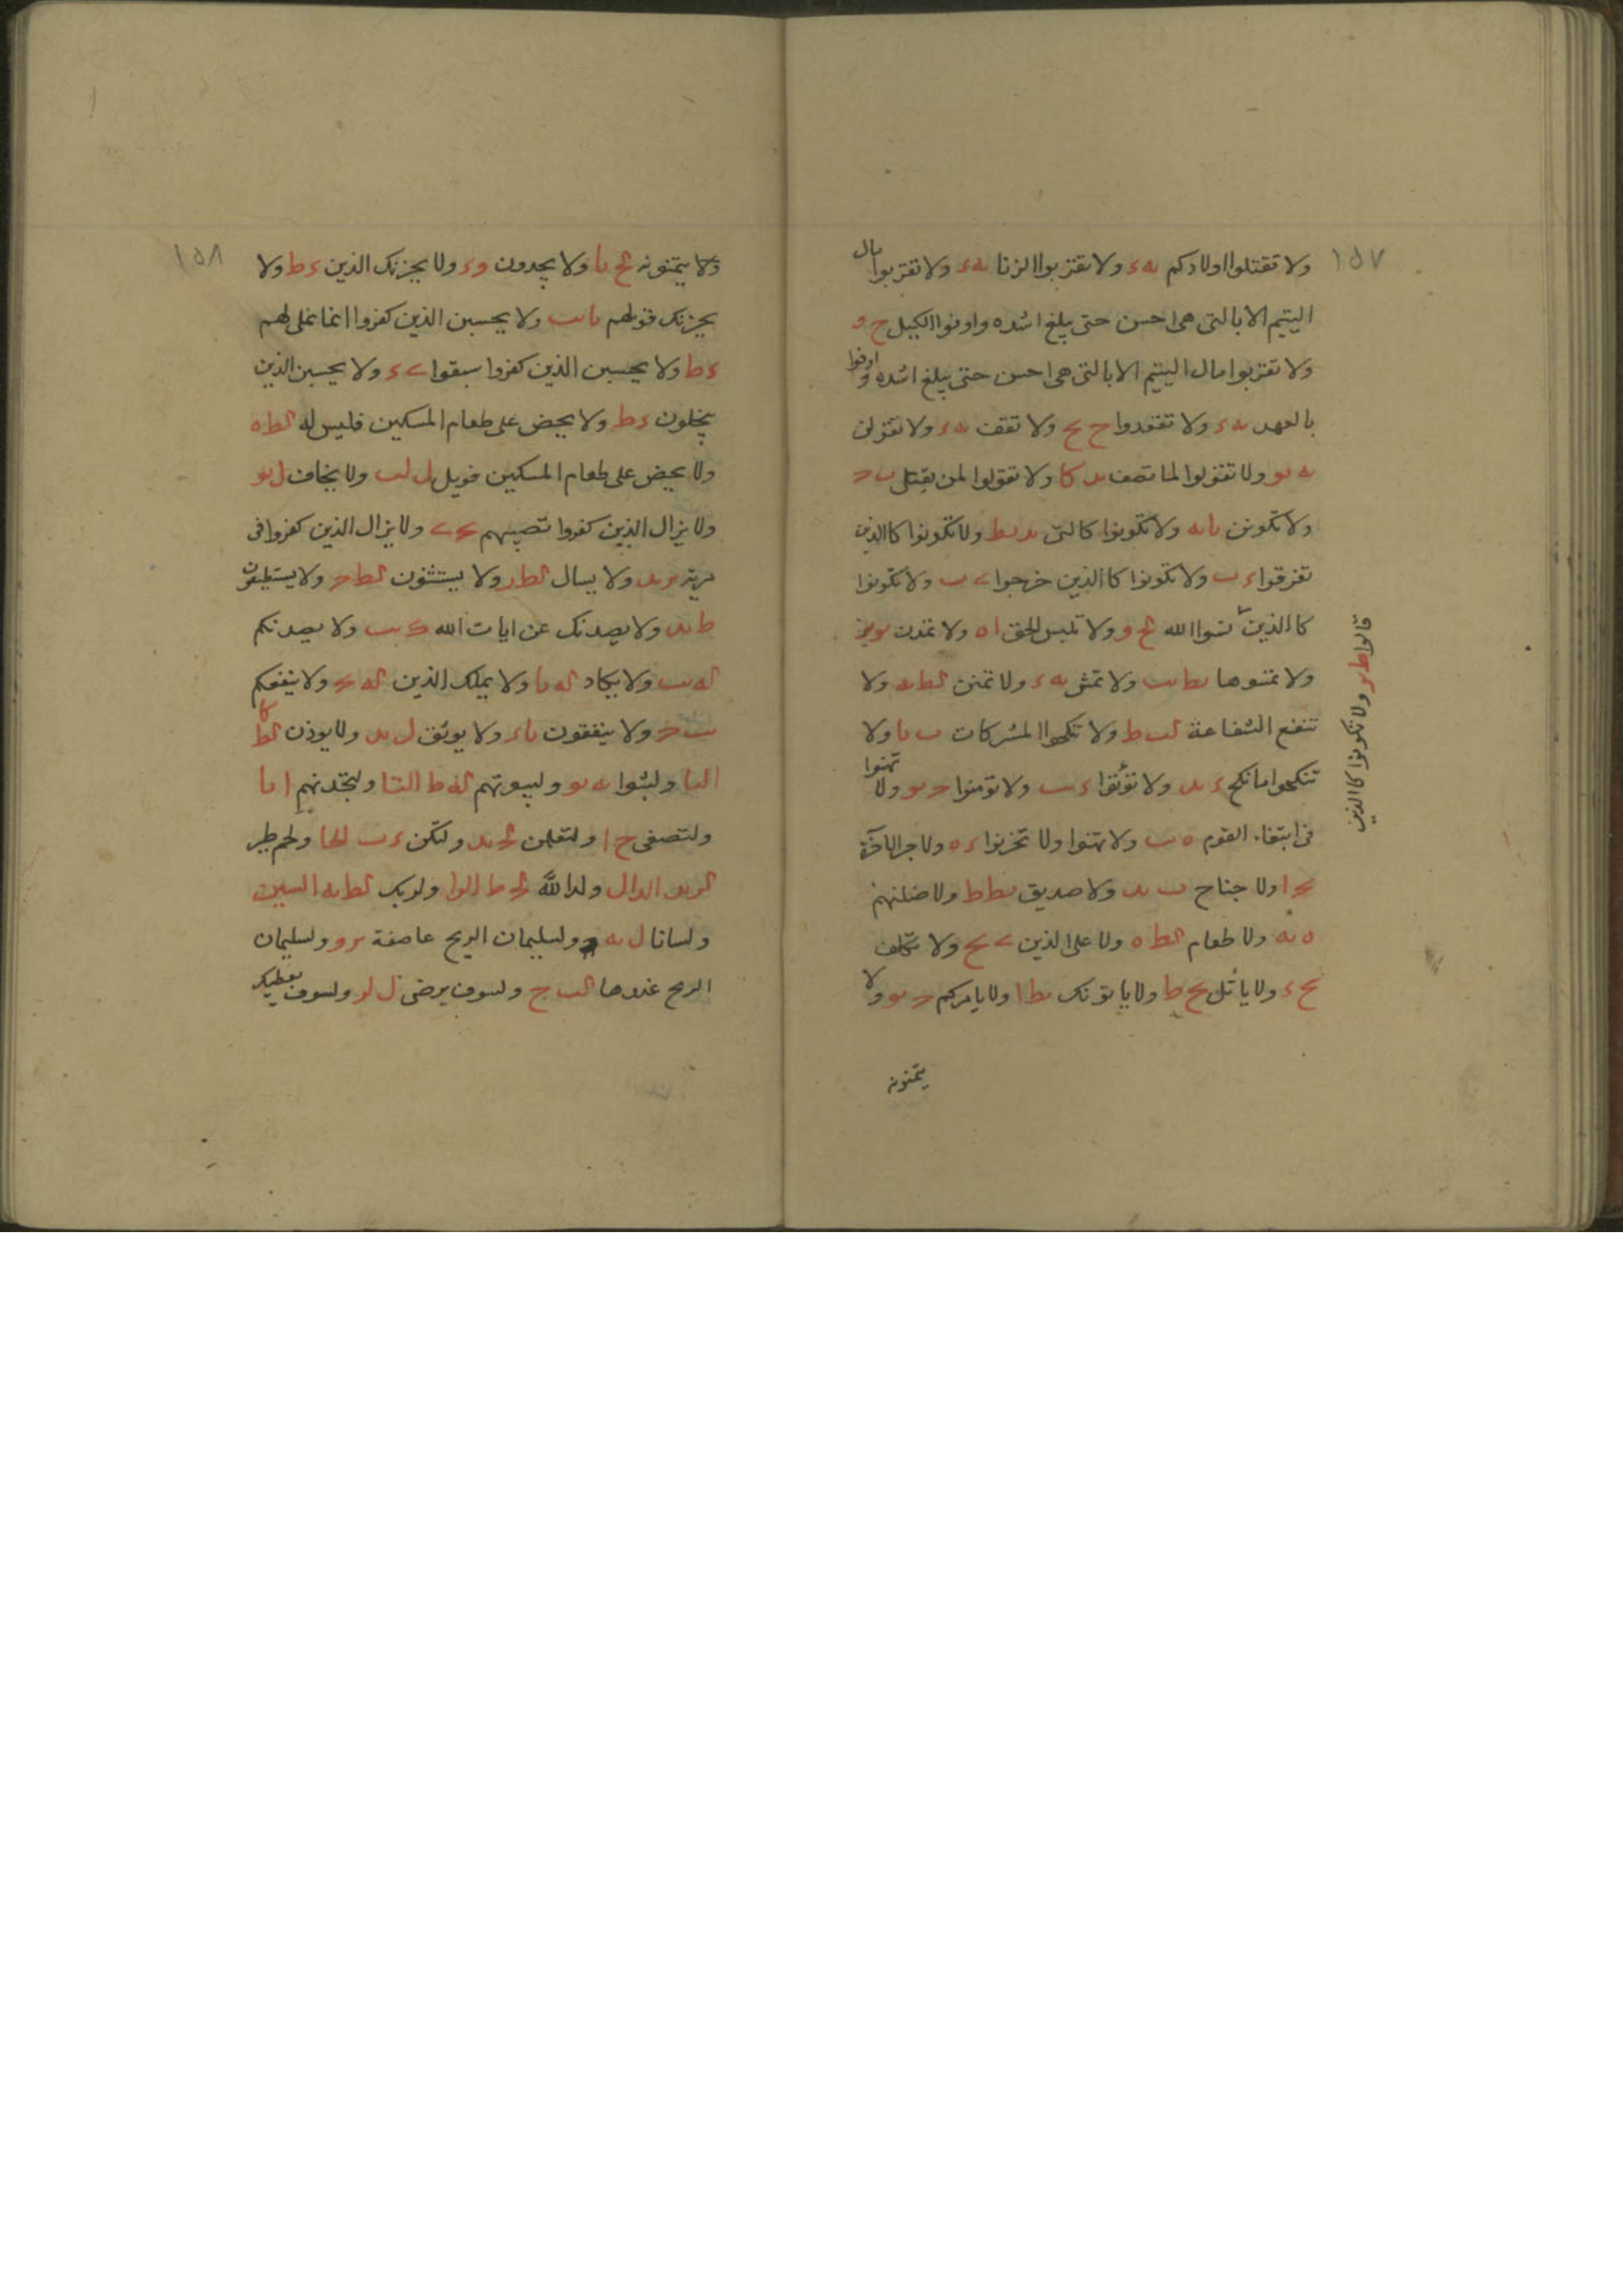 ١٥٧
ولا تقتلوا اولادكم ىه ء ولا تقربوا الزنا ىه ء ولا تقربوا مال
اليتيم الا بالتى هى احسن حتى يبلغ اشده واوفوا الكيل ح و
ولا تقربوا مال اليتيم الا بالتى هى احسن حتى يبلغ اشده و اوفوا
بالعهد ىه ء ولا تقعدوا ح ىح ولا تقف ىه ء ولا تقولن
ىه ىو ولا تقولوا لما تصف ىد كا ولا تقولوا لمن يقتل ب ح
ولا تكونن ىا ىه ولا تكونوا كالتى ىد ىط ولا تكونوا كالذين
تفرقوا ء ب ولا تكونوا كالذين خرجوا ى ب ولا تكونوا
كالذين نسوا الله لح و ولا تلبس الحق ا ه ولا تمدن
ولا تمسوها ىط ىب ولا تمش ىه ء ولا تمنن لط ىه ولا
تنفع الشفاعة لب ط ولا تنكحوا المشركات ب ىا ولا
تنكحوا ما نكح ء ىد ولا تؤتوا ء ىب ولا تؤمنوا ح ىو ولا تهنوا
فى ابتغاء القوم ه ب ولا تهنوا ولا تحزنوا ء ه ولاجر الاخرة
ىح ا ولا جناح ب ىد ولا صديق ىط ط ولاضلنهم
ه ىه ولا طعام لط ه ولا على الذين ى ىح ولا نكلف
ىح ء ولا ياتل ىح ط ولا ياتونك ىط ا ولا يامركم ح ىو ولا
يتمنونه
قالوا ط ىو ولا تكونوا كالذين
١٥٨
ولا يتمنونه لح ىا ولا يجدون و ء ولا يحزنك الذين ء ط ولا
يحزنك قولهم ىا ىب ولا يحسبن الذين كفروا انما نملى لهم
ء ط ولا يحسبن الذين كفروا سبقوا ى ء ولا يحسبن الذين
يبخلون ء ط ولا يحض على طعام المسكين فليس له لط ه
ولا يحض على طعام المسكين فويل ل لب ولا يخاف ل ىو
ولا يزال الذين كفروا تصيبهم ىح ى ولا يزال الذين كفروا فى
مرية ىر ىد ولا يسال لط ر ولا يستثنون لط ح ولا يستطيعون
ط ىد ولا يصدنك عن ايات الله ك ىب ولا يصدنكم
له ىب ولا يكاد له ىا ولا يملك الذين له ىح ولا ينفعكم
ىب ح ولا ينفقون ىا ء ولا يوثق ل ىد ولا يوذن لط كا
البا ولبثوا ىه ىو ولبيوتهم له ط التا ولتجدنهم ا ىا
ولتصغى ح ا ولتعلمن لح ىد ولتكن ء ب الحا ولحم طير
الدال ولدا لله الرا ولربك لط ىه السين
ولسانا ل ىه ولسليمان الريح عاصفة ىر و ولسليمان
الريح غدوها لب ح ولسوف يرضى ل لر ولسوف يعطيك